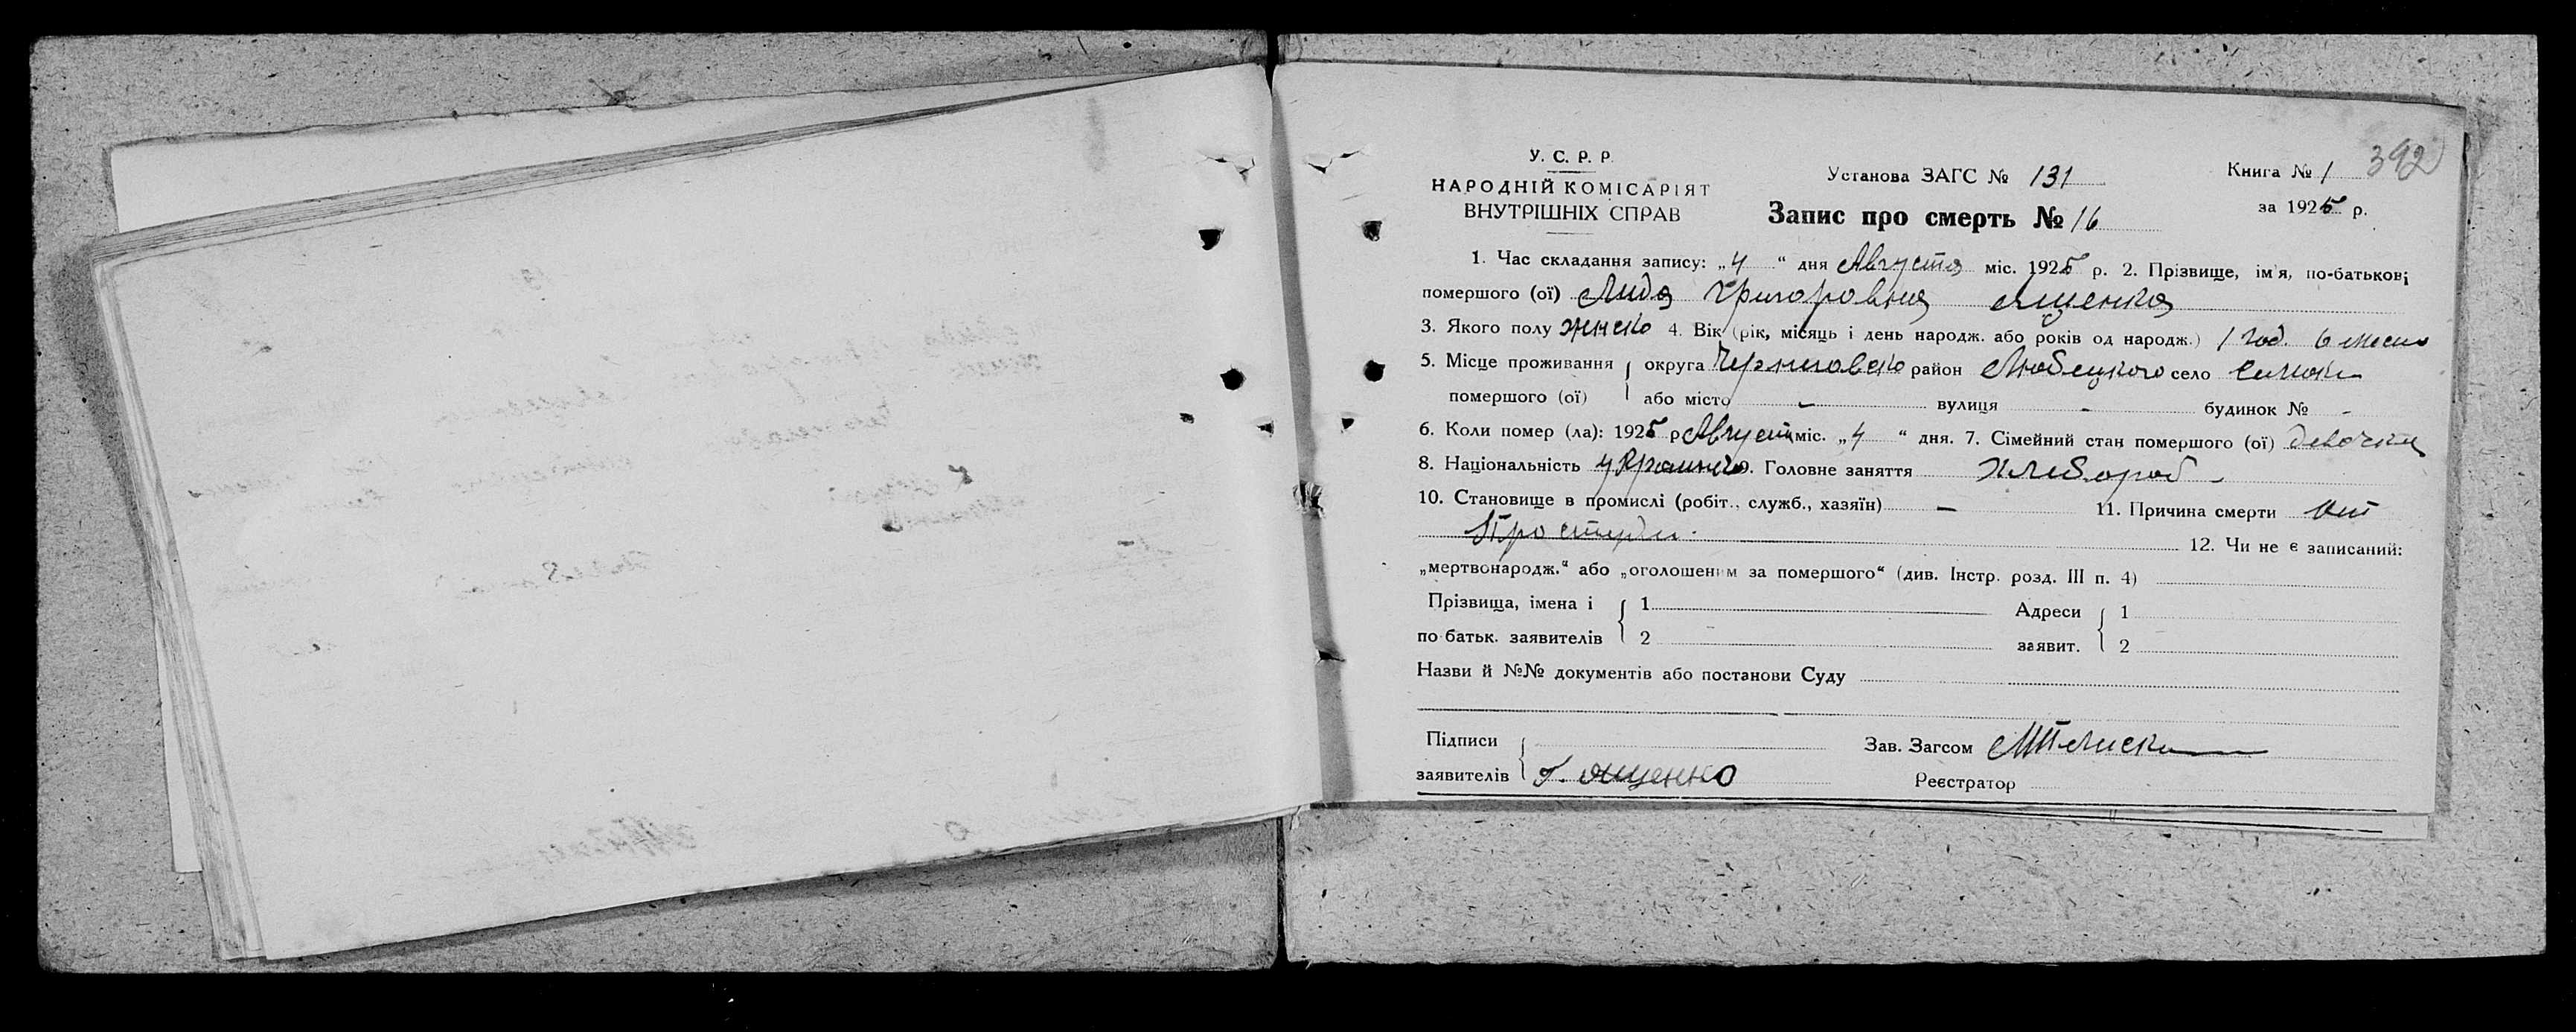 У. С. Р. Р.
НАРОДНІЙ КОМІСАРІЯТ
ВНУТРІШНІХ СПРАВ
Установа ЗАГС № 131
Книга № 1 392
Запис про смерть № 16
за 1925 р.
1. Час складання запису: „4“ дня Августа міс. 1925 р. 2. Прізвище, ім'я, по-батькові
помершого (ої) Лида Григоровна Ященко
3. Якого полу женско 4. Вік (рік, місяць і день народж. або років од народж.) 1 год. 6 месяц
5. Місце проживання { округа Черниговско район Любецкого село
помершого (ої) або місто - вулиця - будинок № -
6. Коли помер (ла): 1925 р Августа міс. „4“ дня. 7. Сімейний стан помершого (ої) девочка
8. Національність 9. Головне заняття Хлебороб -
10. Становище в промислі (робіт., служб., хазяїн) - 11. Причина смерти От
Простуди. 12. Чи не є записаний:
„мертвонародж.“ або „оголошеним за помершого“ (див. Інстр. розд. III п. 4)
Прізвища, імена і { 1 Адреси { 1
по батьк. заявителів 2 заявит. 2
Назви й №№ документів або постанови Суду
Підписи { Зав. Загсом
заявителів Г. Ященко Реєстратор